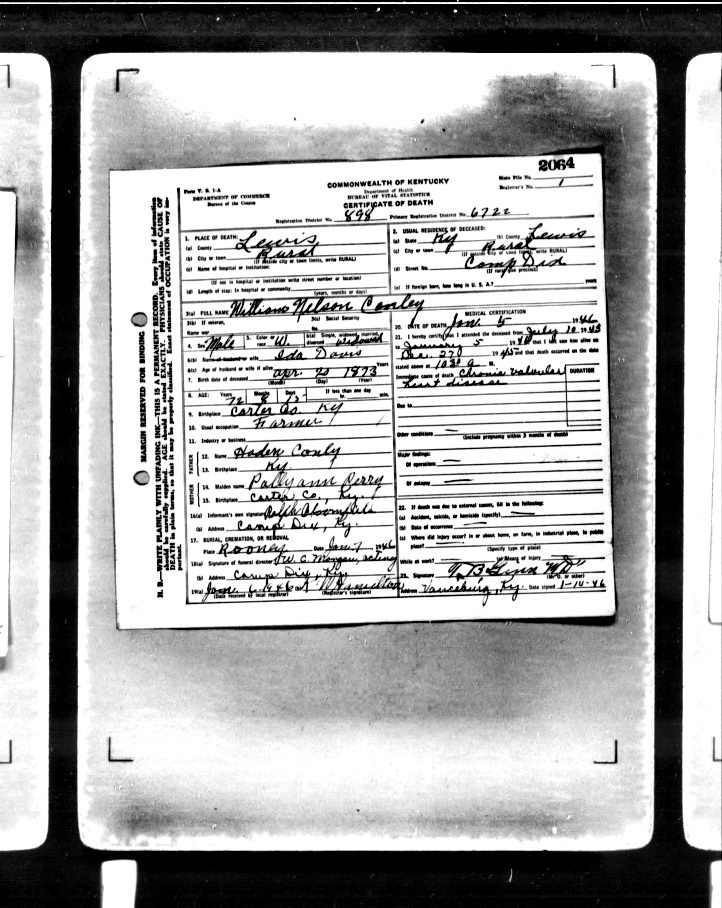 2064
Form V. S. 1-A
DEPARTMENT OF COMMERCE
Bureau of the Census
COMMONWEALTH OF KENTUCKY
Department of Health
BUREAU OF VITAL STATISTICS
CERTIFICATE OF DEATH
State File No.
Registrar's No. 1
Registration District No. 898 Primary Registration District No. 6722
MARGIN RESERVED FOR BINDING
N. B.—WRITE PLAINLY WITH UNFADING INK—THIS IS A PERMANENT RECORD. Every item of information
should be carefully supplied. AGE should be stated EXACTLY. PHYSICIANS should state CAUSE OF
DEATH in plain terms, so that it may be properly classified. Exact statement of OCCUPATION is very im-
portant.
1. PLACE OF DEATH:
(a) County Lewis
(b) City or town Rural
(If outside city or town limits, write RURAL)
(c) Name of hospital or institution:
(If not in hospital or institution write street number or location)
(d) Length of stay: In hospital or community
(years, months or days)
2. USUAL RESIDENCE OF DECEASED:
(a) State Ky (b) County Lewis
(c) City or town Rural
(If outside city or town limits, write RURAL)
(d) Street No. Camp Dix
(If rural give precinct)
(e) If foreign born, how long in U. S. A.? years
3(a) FULL NAME William Nelson Conley
3(b) If veteran,
Name war
3(c) Social Security
No.
4. Sex Male 5. Color or race W. 6(a) Single, widowed, married, divorced Widowed
6(b) Name of husband or wife Ida Davis
6(c) Age of husband or wife if alive
7. Birth date of deceased Apr. 20 1873
(Month) (Day) (Year)
8. AGE: Years Months Days If less than one day
72 8 15 hr. min.
9. Birthplace Carter Co. Ky
10. Usual occupation Farmer
11. Industry or business
FATHER
12. Name Haden Conly
13. Birthplace Ky
MOTHER
14. Maiden name Pollyann Perry
15. Birthplace Carter Co., Ky.
16(a) Informant's own signature Ralph Bloomfield
(b) Address Camp Dix, Ky.
17. BURIAL, CREMATION, OR REMOVAL
Place Rooney Date Jan. 7 1946
18(a) Signature of funeral director W. C. Morgan, acting
(b) Address Camp Dix, Ky.
19(a) Jan. 6 1946
(Date received by local registrar) (Registrar's signature)
MEDICAL CERTIFICATION
20. DATE OF DEATH Jan. 5 1946
21. I hereby certify that I attended the deceased from July 10 1943
to January 5 1946 that I last saw him alive on
Dec. 1945 and that death occurred on the date
stated above at 10:30 a M.
Immediate cause of death Chronic valvular
heart disease
DURATION
Due to
Other conditions
(Include pregnancy within 3 months of death)
Major findings:
Of operations
Of autopsy
22. If death was due to external causes, fill in the following:
(a) Accident, suicide, or homicide (specify)
(b) Date of occurrence
(c) Where did injury occur? In or about home, on farm, in industrial place, in public
place?
(Specify type of place)
While at work? (e) Means of injury
23. Signature
(M. D. or other)
Address Vanceburg, Ky. Date signed 1-14-46